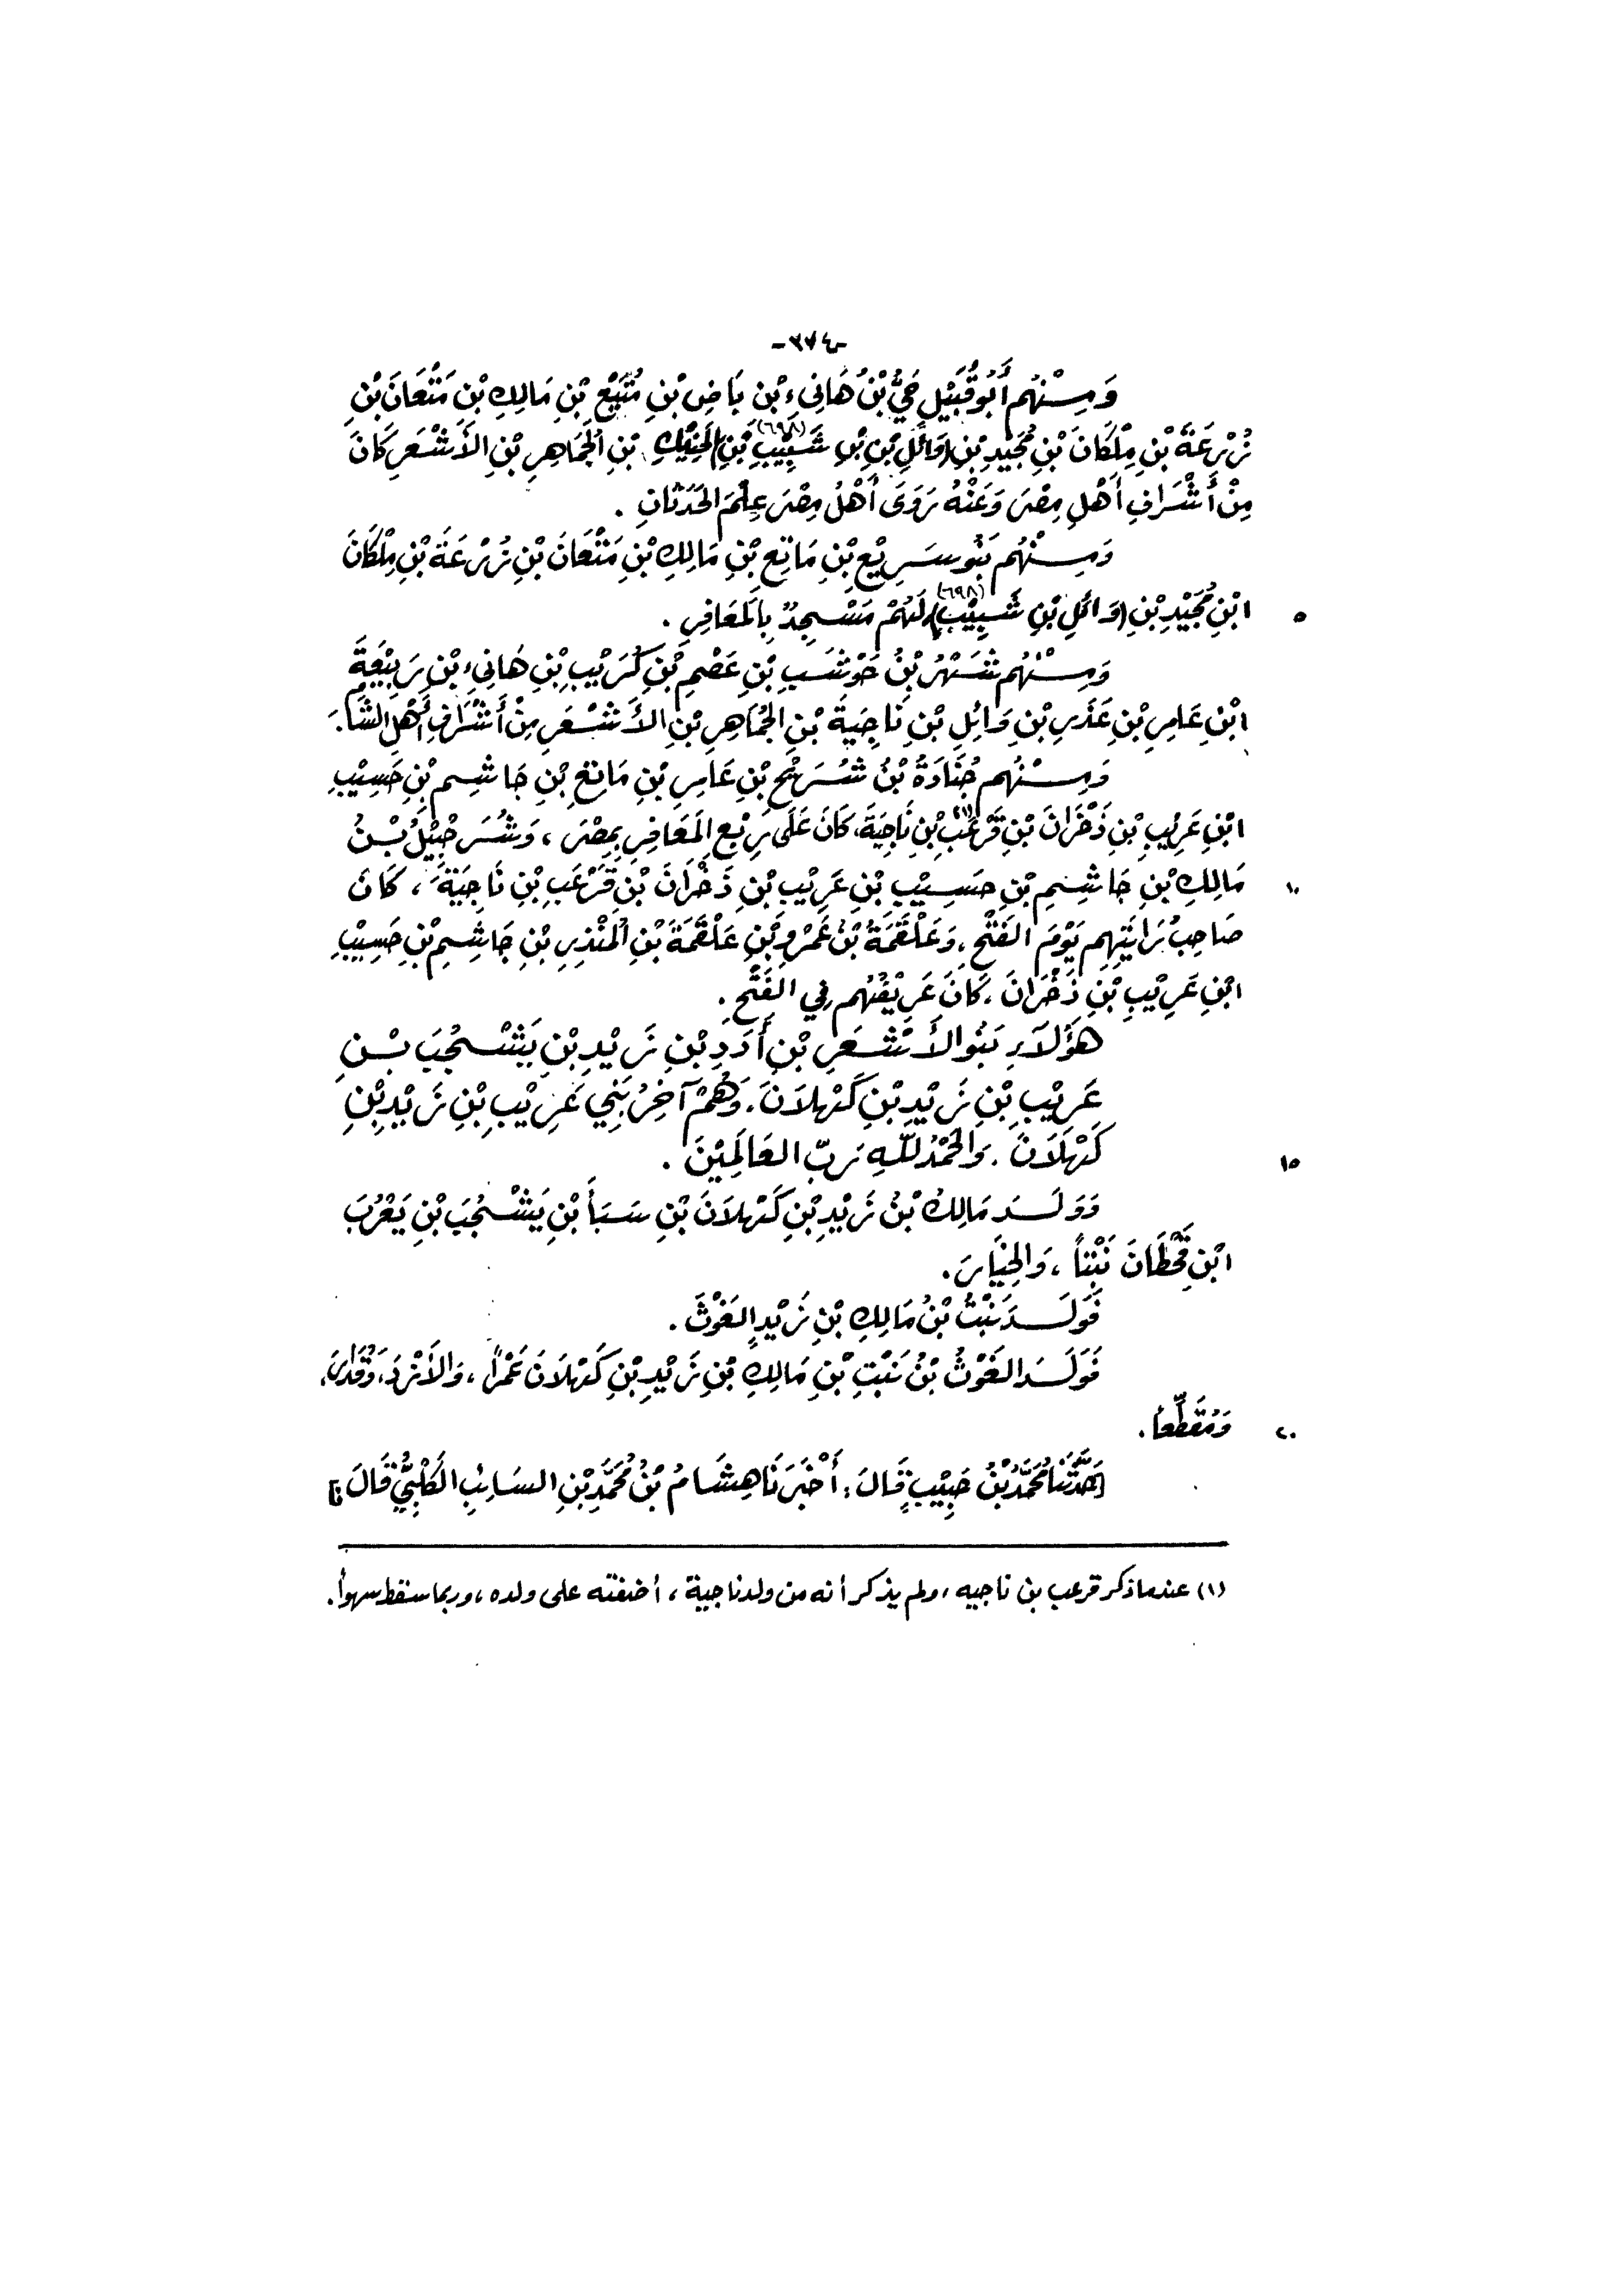 -٣٧٤-
وَمِنْهُم أَبُو قُبَيْلٍ حَيُّ بْنُ هَانِيءِ بْنِ بَاضِ بْنِ مُتَبَيِّعِ بْنِ مَالِكِ بْنِ مَتْعَانَ بْنِ
زُرْعَةَ بْنِ مِلْكَانَ بْنِ مُجَيْدِ بْنِ (وَائِلِ بْنِ شَبِيْبِ (٦٩٨) بْنِ) الحَنِيْكِ بْنِ الجَمَاهِرِ بْنِ الأَشْعَرِ كَانَ
مِنْ أَشْرَافِ أَهْلِ مِصْرَ وَعَنْهُ رَوَى أَهْلُ مِصْرَ عِلْمَ الحَدَثَانِ .
وَمِنْهُم بَنُو سَرِيْعِ بْنِ مَاتِعِ بْنِ مَالِكِ بْنِ مَتْعَانَ بْنِ زُرْعَةَ بْنِ مِلْكَانَ
ابْنِ مُجَيْدِ بْنِ (وَائِلِ بْنِ شَبِيْبٍ) (٦٩٨) لَهُمْ مَسْجِدٌ بِالمَعَافِرِ . ٥
وَمِنْهُم شَهْرُ بْنُ حَوْشَبِ بْنِ عَصْمِ بْنِ كُرَيْبِ بْنِ هَانِيءِ بْنِ رَبِيْعَةَ
ابْنِ عَامِرِ بْنِ عَذَرِ بْنِ وَائِلِ بْنِ نَاجِيَةَ بْنِ الجُمَاهِرِ بْنِ الأَشْعَرِ مِنْ أَشْرَافِ أَهْلِ الشَّامِ.
وَمِنْهُم جُنَادَةُ بْنُ شُرَيْحِ بْنِ عَامِرِ بْنِ مَانِعِ بْنِ جَاشِمِ بْنِ حَسِيْبِ
ابْنِ عَرِيْبِ بْنِ ذَخْرَانَ بْنِ قَرْعَبِ (١) بْنِ نَاجِيَةَ، كَانَ عَلَى رَبْعِ المَعَافِرِ بِمِصْرَ ، وَشُرَحْبِيْلُ بْنُ
مَالِكِ بْنِ جَاشِمِ بْنِ حَسِيْبِ بْنِ عَرِيْبِ بْنِ ذَخْرَانَ بْنِ قَرْعَبِ بْنِ نَاجِيَةَ ، كَانَ ١٠
صَاحِبُ رَايَتِهِم يَوْمَ الفَتْحِ ، وَعَلْقَمَةُ بْنُ عَمْرِو بْنِ عَلْقَمَةَ بْنِ المُنْذِرِ بْنِ جَاشِمِ بْنِ حَسِيْبِ
ابْنِ عَرِيْبِ بْنِ ذَخْرَانَ ، كَانَ عَرِيْفَهُم فِي الفَتْحِ .
هَؤُلاَءِ بَنُو الأَشْعَرِ بْنِ أُدَدِ بْنِ زَيْدِ بْنِ يَشْجُبَ بْنِ
عَرِيْبِ بْنِ زَيْدِ بْنِ كَهْلاَنَ . وَهُمْ آخِرُ بَنِي عَرِيْبِ بْنِ زَيْدِ بْنِ
كَهْلاَنَ . وَالحَمْدُ للّهِ رَبِّ العَالَمِيْنَ . ١٥
وَوَلَدَ مَالِكُ بْنُ زَيْدِ بْنِ كَهْلاَنَ بْنِ سَبَأَ بْنِ يَشْجُبَ بْنِ يَعْرُبَ
ابْنِ قَحْطَانَ نَبْتاً ، وَالخِيَارَ .
فَوَلَدَ نَبْتُ بْنُ مَالِكِ بْنِ زَيْدٍ الغَوْثَ .
فَوَلَدَ الغَوْثُ بْنُ نَبْتِ بْنِ مَالِكِ بْنِ زَيْدِ بْنِ كَهْلاَنَ عَمْراً ، وَالأَزْدَ ، وَقُدَارَ،
وَمُقَطِّعاً . ٢٠
[حَدَّثَنَا مُحَمَّدُ بْنُ حَبِيْبٍ قَالَ : أَخْبَرَنَا هِشَامُ بْنُ مُحَمَّدِ بْنِ السَائِبِ الكَلْبِيُّ قَالَ :]
(١) عندما ذكر قرعب بن ناجيه ، ولم يذكر أنه من ولد ناجية ، أضفته على ولده ، وربما سقط سهواً .